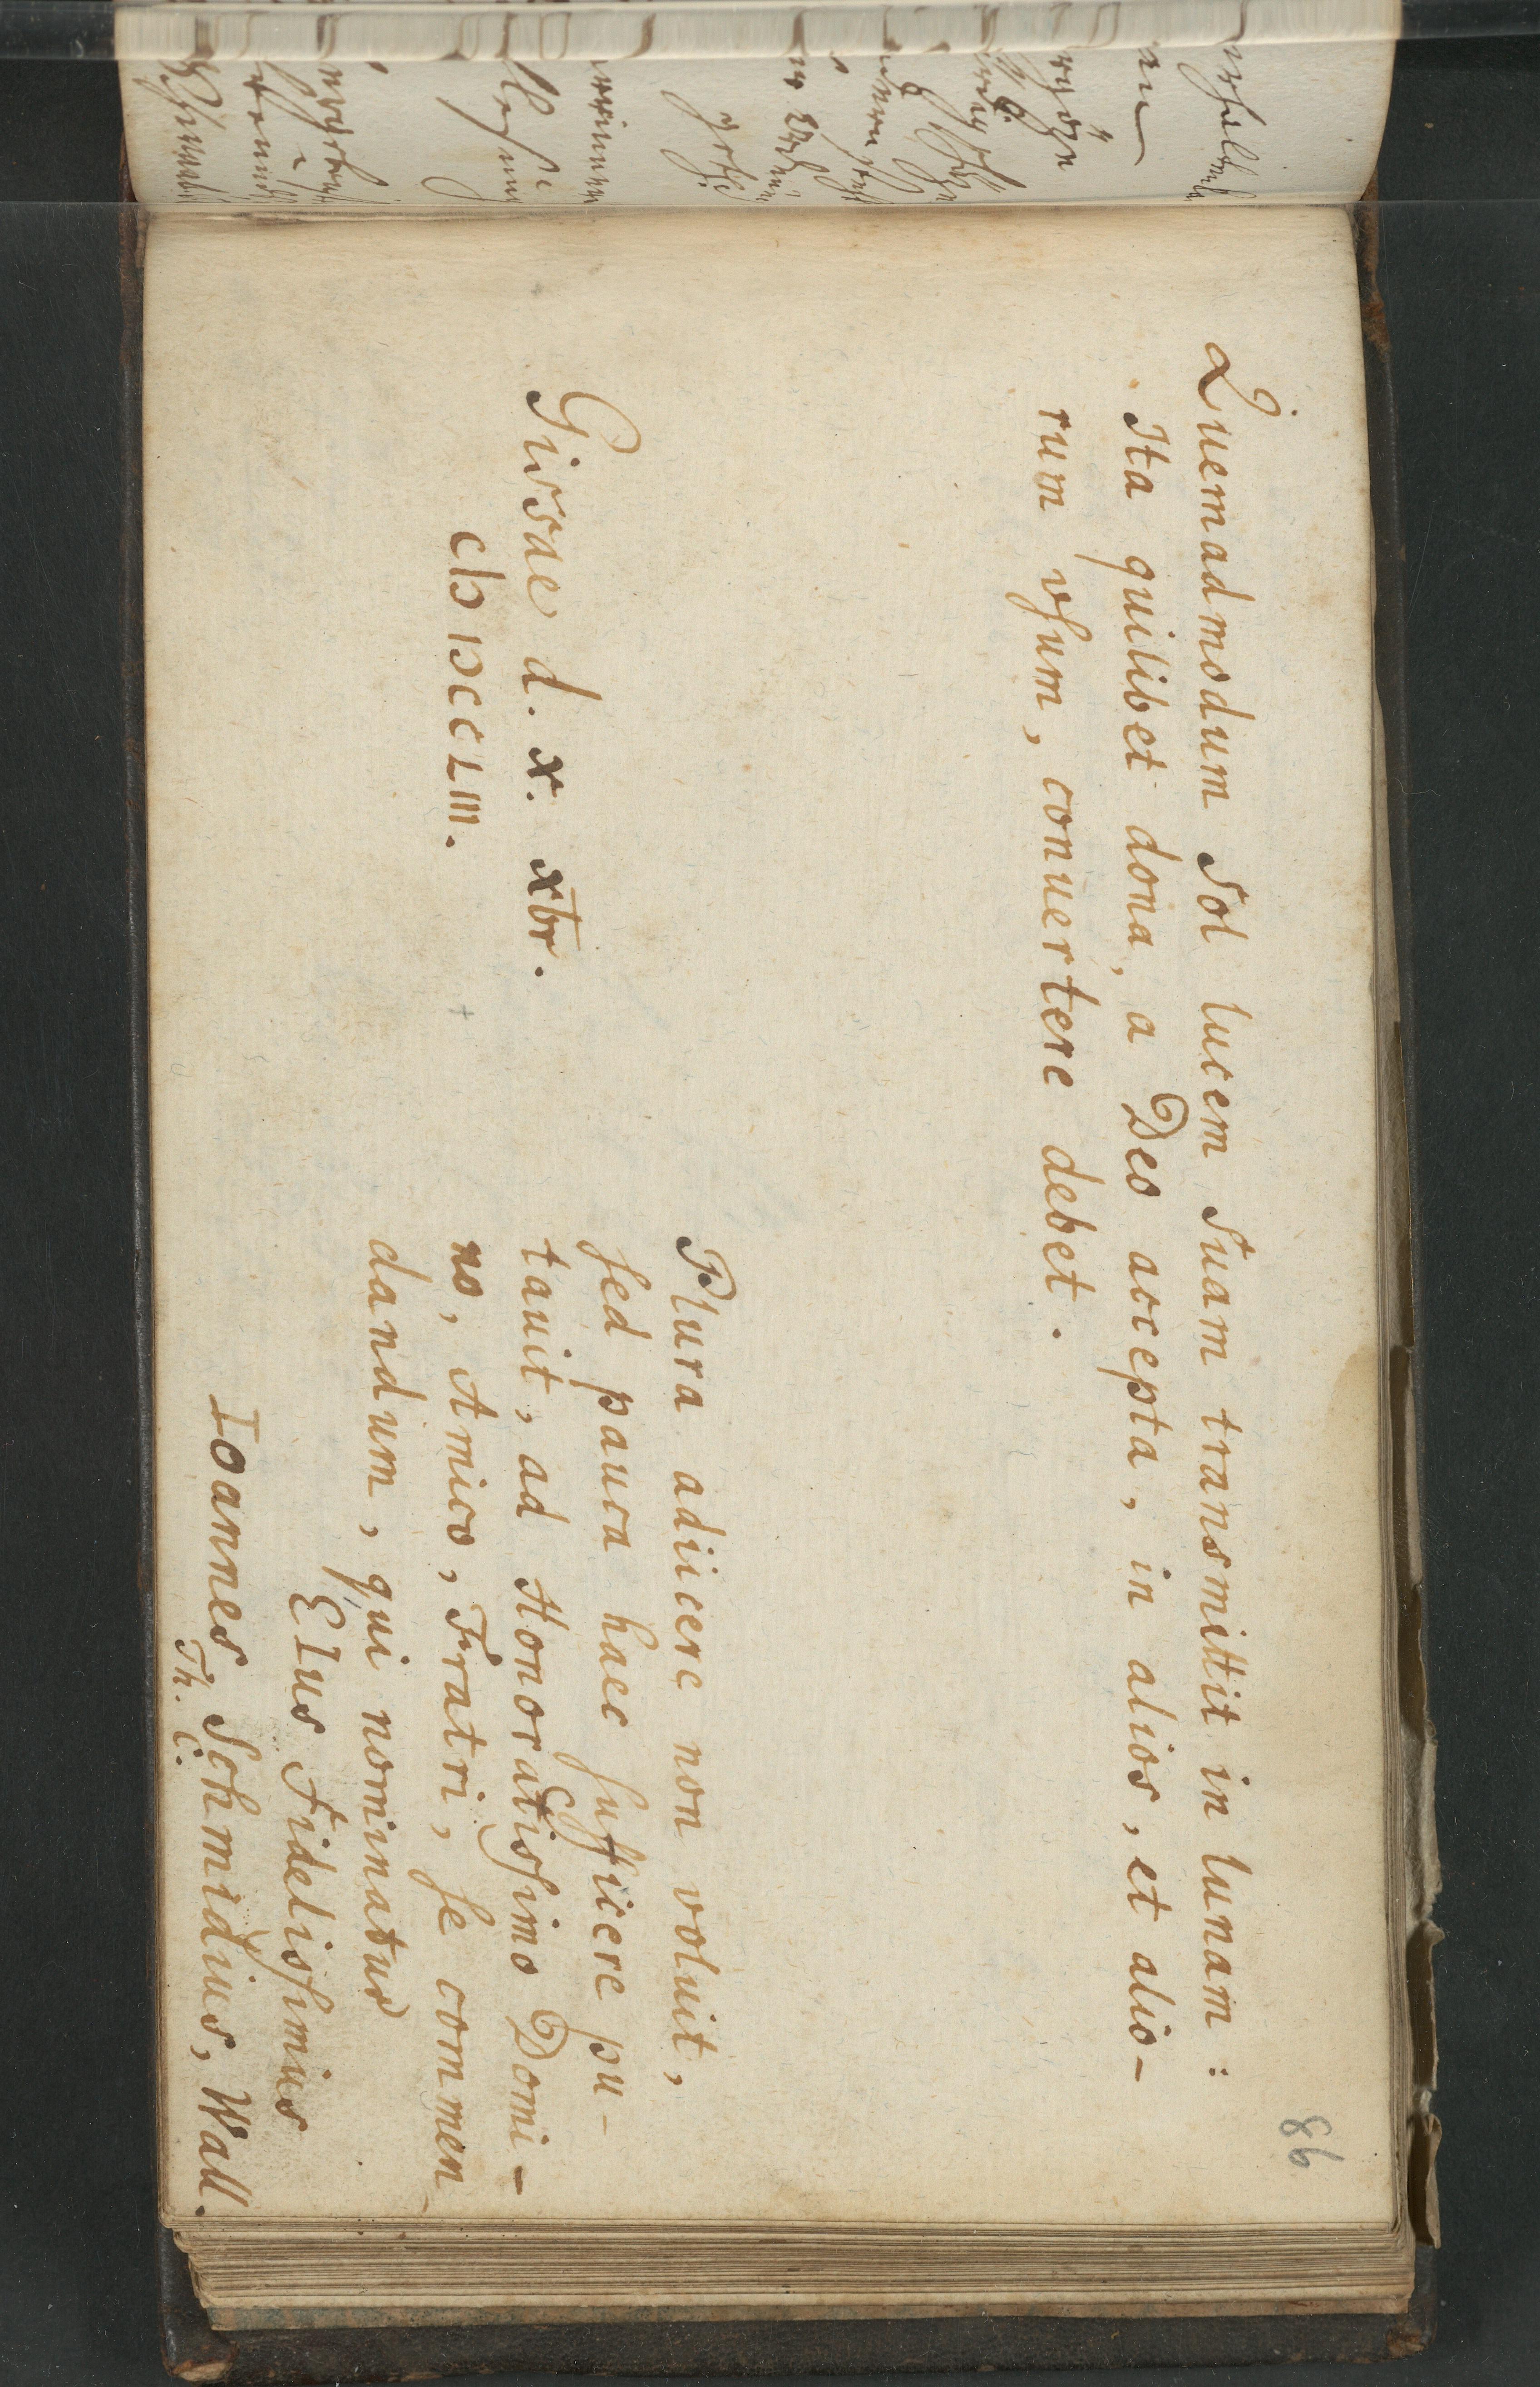 86
Quemadmodum Sol lucem Suam transmittit in lunam:
Ita quilibet dona, a Deo accepta, in alios, et alio-
rum vſum, conuertere debet.
Plura adiicere non voluit,
ſed pauca haec ſufficere pu-
tauit, ad Honoratiſſimo Domi-
no, Amico, Fratri, ſe commen
dandum, qui nominatur
EIus Fidelisſimus
Ioannes Schmidius, Wall.
Th. C.
Gissae d. x. xbr.
cIↄ IↄccLIII.